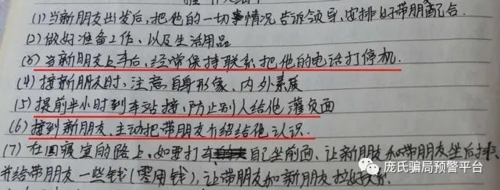 (1)当新朋友出发后,把他的一切事情况告诉领导,安排好带朋配合.
(2)做好准备工作,以及生活用品
(3)当新朋友上车后,经常保持联系把他的电话打停机.
(4)接新朋友时,注意自身形象,内外素质
(5)提前半小时到车站接,防止别人给他灌负面
(6)接到新朋友,主动把带朋友介绍给他认识.
(7)在回寝室的路上,如要打车自己坐前面,让新朋友和带朋坐后排,
并给带朋友一些钱(零用钱),让带朋友和新朋友
庞氏骗局预警平台